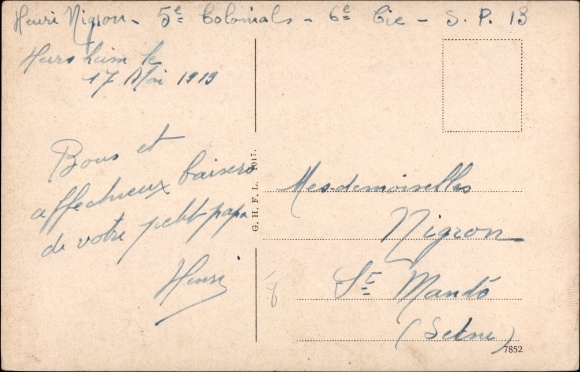 Henri Nigron - 5e Colonials - 6e Cie - S. P. 13
le
17 Mai 1919
Bons et
affectueux baisers
de votre petit papa
Henri
G. H. F. L. 1917.
Mesdemoiselles
Nigron
St Mandé
(Seine)
7852